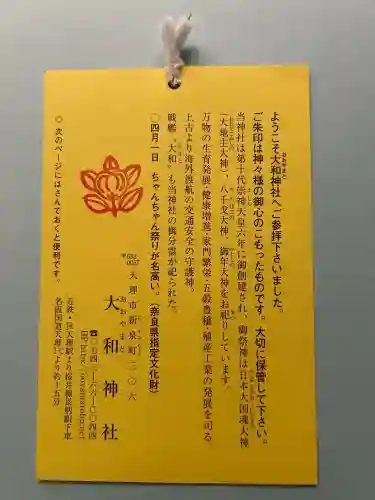 ようこそ大和神社へご参拝下さいました。
ご朱印は神々様の御心のこもったものです。大切に保管して下さい。
当神社は第十代崇神天皇六年に御創建され、御祭神は日本大国魂大神
(大地主大神)、八千戈大神、御年大神をお祀りしています。
万物の生育発展・健康増進・家門繁栄・五穀豊穣・殖産工業の発展を司る、
上古より海外渡航の交通安全の守護神。
戦艦〝大和〟も当神社の御分霊が祀られた。
〇四月一日 ちゃんちゃん祭りが名高い。(奈良県指定文化財)
〒632-0057 天理市新泉町三〇六
大和神社
おおやまと
☎〇七四三-六六-〇〇四四
近鉄・JR天理駅より桜井線長柄駅下車
名阪国道天理ICより約十五分
〇次のページにはさんでおくと便利です。